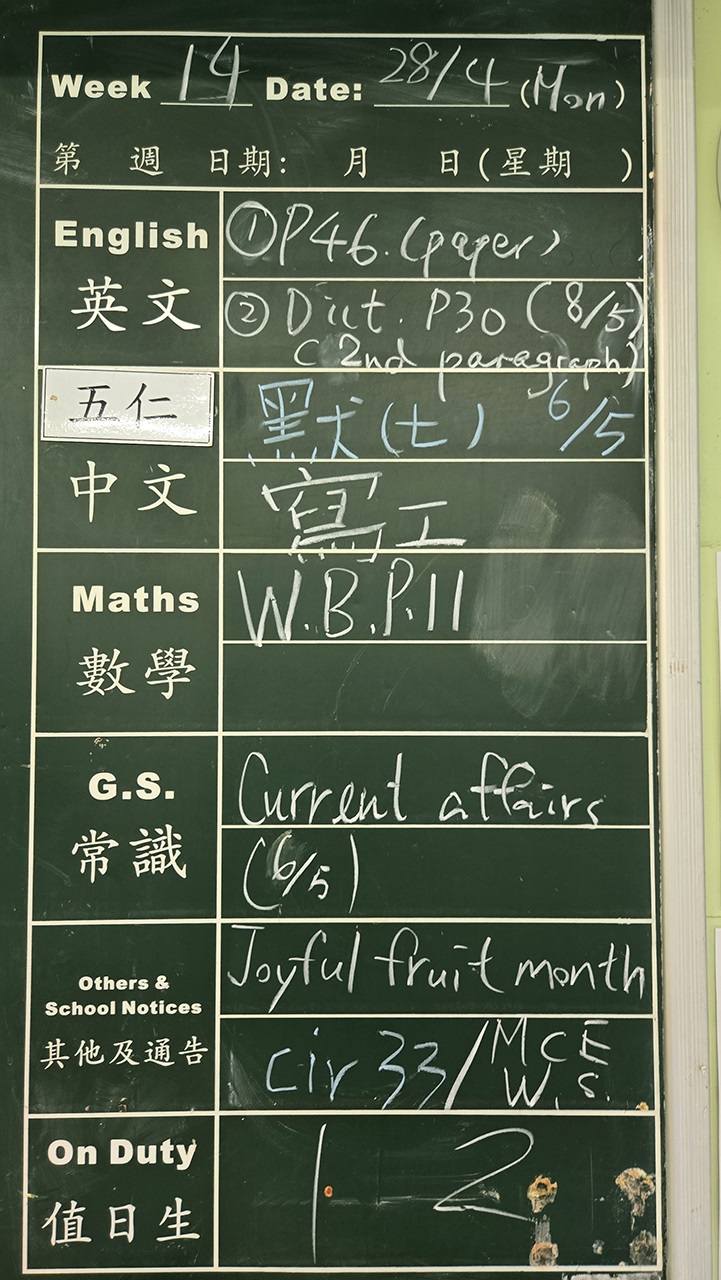 Week 14 Date: 28/4 (Mon)
第 週 日期: 月 日(星期 )
English
英文
①P46.(paper)
②Dict. P30 (8/5)
(2nd paragraph)
五仁
中文
默(七) 6/5
寫工
Maths
數學
W.B.P.11
G.S.
常識
Current affairs
(6/5)
Others &
School Notices
其他及通告
Joyful fruit month
Cir 33/MCE
W.S.
On Duty
值日生
1 2